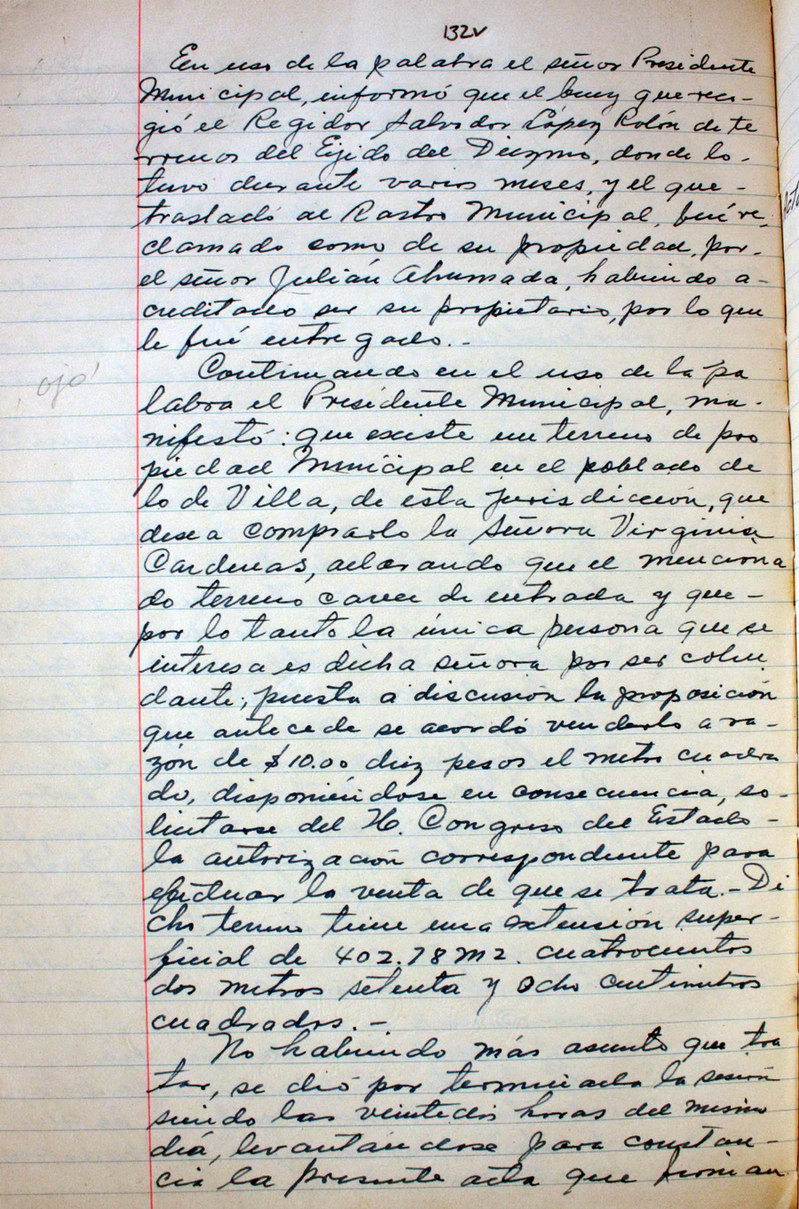 132v
En uso de la palabra el señor Presidente
Municipal, informó que el buey que reco-
gió el Regidor Salvador López Rolón de te
rrenos del Ejido del Diezmo, donde lo-
tuvo durante varios meses, y el que-
trasladó al Rastro Municipal, fué re-
clamado como de su propiedad, por-
el señor Julián Ahumada, habiendo a-
creditado ser su propietario, por lo que
le fué entregado.-
ojo
Continuando en el uso de la pa
labra el Presidente Municipal, ma-
nifestó: que existe un terreno de pro
piedad Municipal en el poblado de
lo de Villa, de esta jurisdicción, que
desea comprarlo la Señora Virginia
Cardenas, aclarando que el menciona
do terreno carece de entrada y que-
por lo tanto la única persona que se
interesa es dicha señora por ser colin
dante; puesta a discusión la proposición
que antecede se acordó venderlo a ra-
zón de $10.00 diez pesos el metro cuadra
do, disponiéndose en consecuencia, so-
licitarse del H. Congreso del Estado-
la autorización correspondiente para
efectuar la venta de que se trata.- Di
cho terreno tiene una extensión super-
ficial de 402.78 m2. cuatrocientos
dos metros setenta y ocho centimetros
cuadrados.-
No habiendo más asunto que tra
tar, se dió por terminada la sesión
siendo las veintedos horas del mismo
dia, levantándose para constan-
cia la presente acta que firman